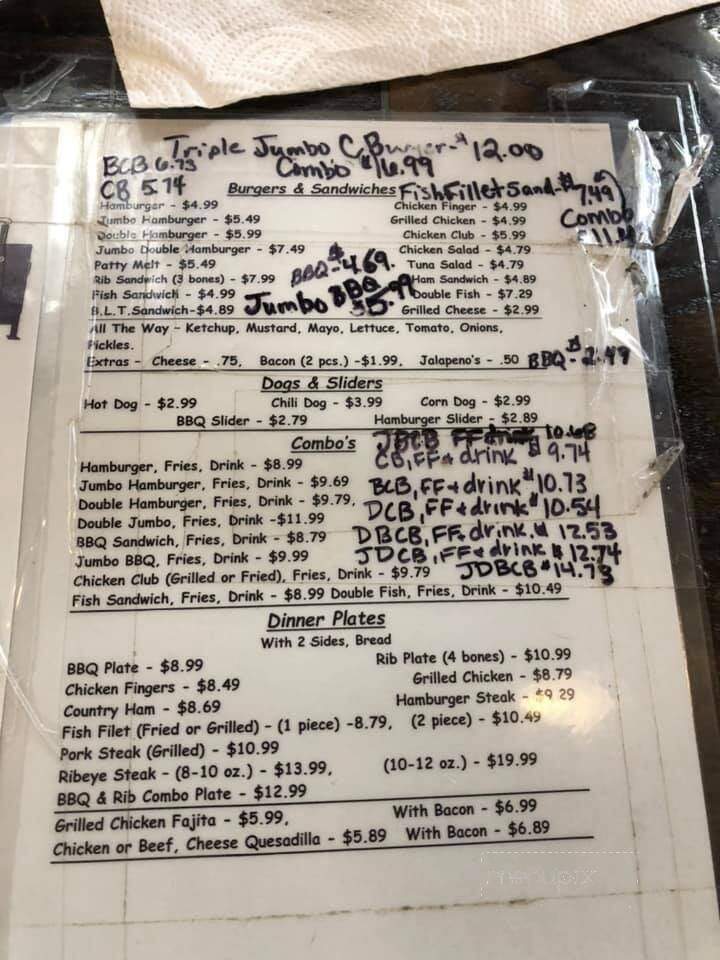 Triple Jumbo C Burger-$12.00
BCB 6.73 Combo $16.99
CB 5.74 Burgers & Sandwiches Fish Fillet Sand-$7.49
Hamburger - $4.99 Chicken Finger - $4.99 Combo
Jumbo Hamburger - $5.49 Grilled Chicken - $4.99
Double Hamburger - $5.99 Chicken Club - $5.99
Jumbo Double Hamburger - $7.49 Chicken Salad - $4.79
Patty Melt - $5.49 BBQ-$4.69. Tuna Salad - $4.79
Rib Sandwich (3 bones) - $7.99 Ham Sandwich - $4.89
Fish Sandwich - $4.99 Jumbo BBQ $5.99 Double Fish - $7.29
B.L.T.Sandwich-$4.89 Grilled Cheese - $2.99
All The Way - Ketchup, Mustard, Mayo, Lettuce, Tomato, Onions,
Pickles.
Extras - Cheese - .75, Bacon (2 pcs.) -$1.99, Jalapeno's - .50 BBQ-$2.49
Dogs & Sliders
Hot Dog - $2.99 Chili Dog - $3.99 Corn Dog - $2.99
BBQ Slider - $2.79 Hamburger Slider - $2.89
Combo's JBCB FF drink 10.68
Hamburger, Fries, Drink - $8.99 CB,FF+drink $9.74
Jumbo Hamburger, Fries, Drink - $9.69 BCB,FF+drink $10.73
Double Hamburger, Fries, Drink - $9.79, DCB,FF+drink $10.54
Double Jumbo, Fries, Drink -$11.99
BBQ Sandwich, Fries, Drink - $8.79 DBCB,FF+drink $12.53
Jumbo BBQ, Fries, Drink - $9.99 JDCB,FF+drink $12.74
Chicken Club (Grilled or Fried), Fries, Drink - $9.79 JDBCB $14.73
Fish Sandwich, Fries, Drink - $8.99 Double Fish, Fries, Drink - $10.49
Dinner Plates
With 2 Sides, Bread
BBQ Plate - $8.99 Rib Plate (4 bones) - $10.99
Chicken Fingers - $8.49 Grilled Chicken - $8.79
Country Ham - $8.69 Hamburger Steak - $9.29
Fish Filet (Fried or Grilled) - (1 piece) -8.79, (2 piece) - $10.49
Pork Steak (Grilled) - $10.99
Ribeye Steak - (8-10 oz.) - $13.99, (10-12 oz.) - $19.99
BBQ & Rib Combo Plate - $12.99
Grilled Chicken Fajita - $5.99, With Bacon - $6.99
Chicken or Beef, Cheese Quesadilla - $5.89 With Bacon - $6.89
menupix